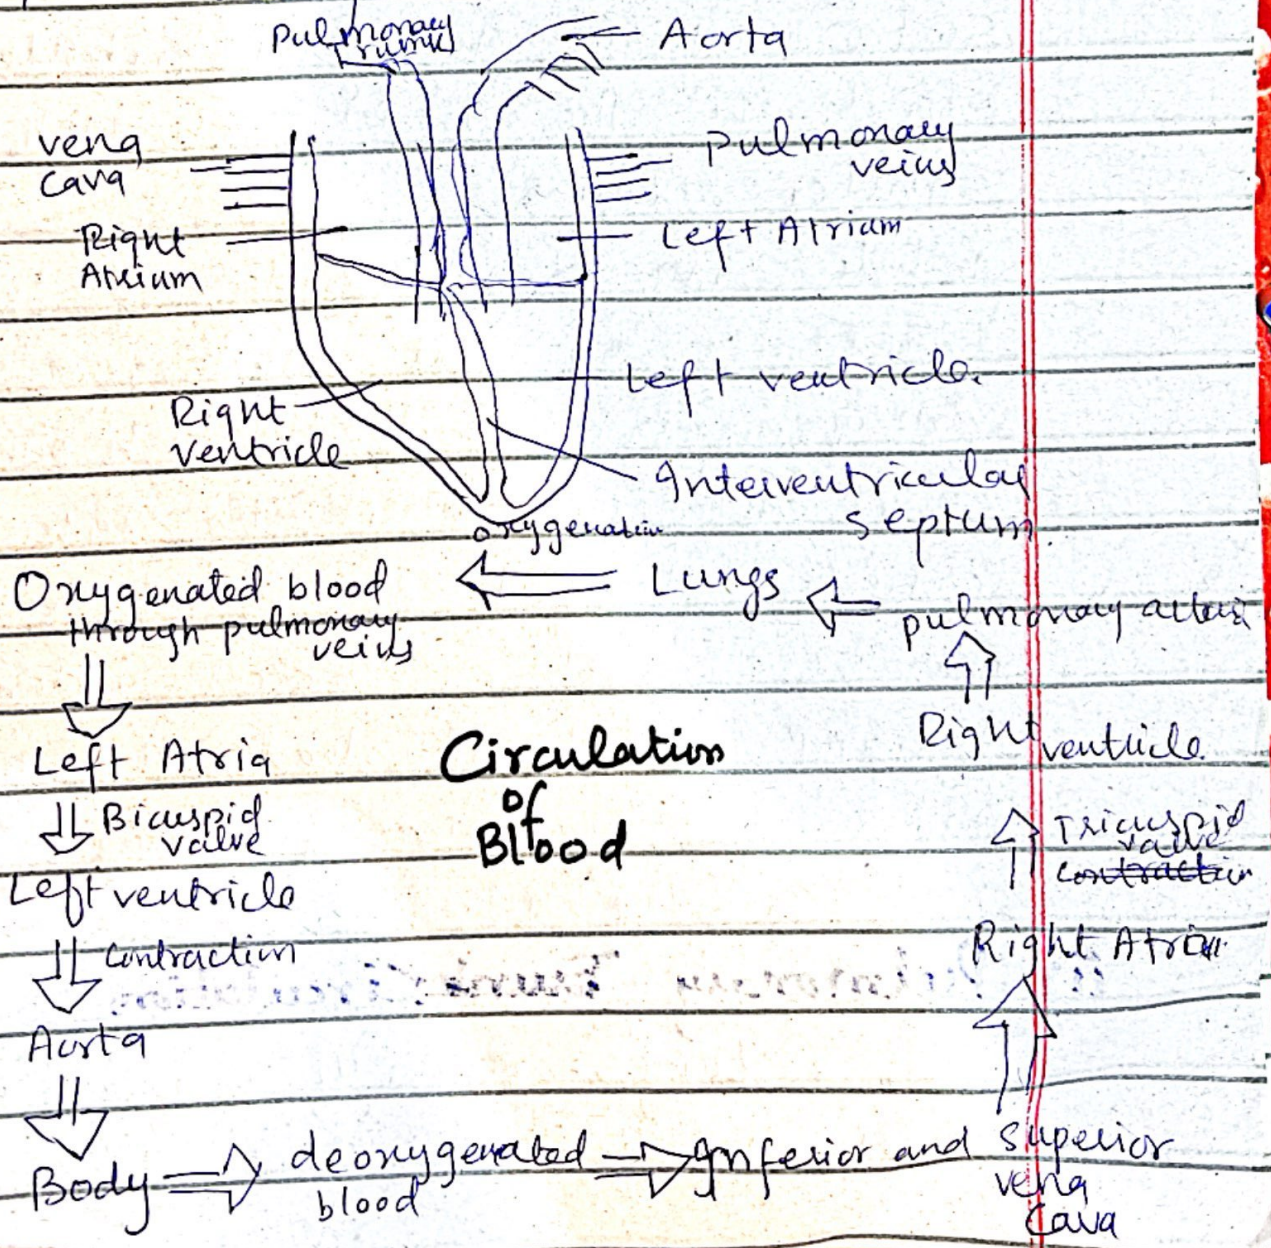 Pulmonary
Aorta
vena
cava
Pulmonary
veins
Right
Atrium
Left Atrium
Left ventricle.
Right
ventricle
Interventricular
septum.
oxygenation
Oxygenated blood
through pulmonary
veins
Lungs
pulmonary
Left Atria
Circulation
of
Blood
Right ventricle.
Bicuspid
valve
Tricuspid
valve
contraction
Left ventricle
contraction
Right Atria
Aorta
Body
deoxygenated
blood
Inferior and Superior
vena
cava